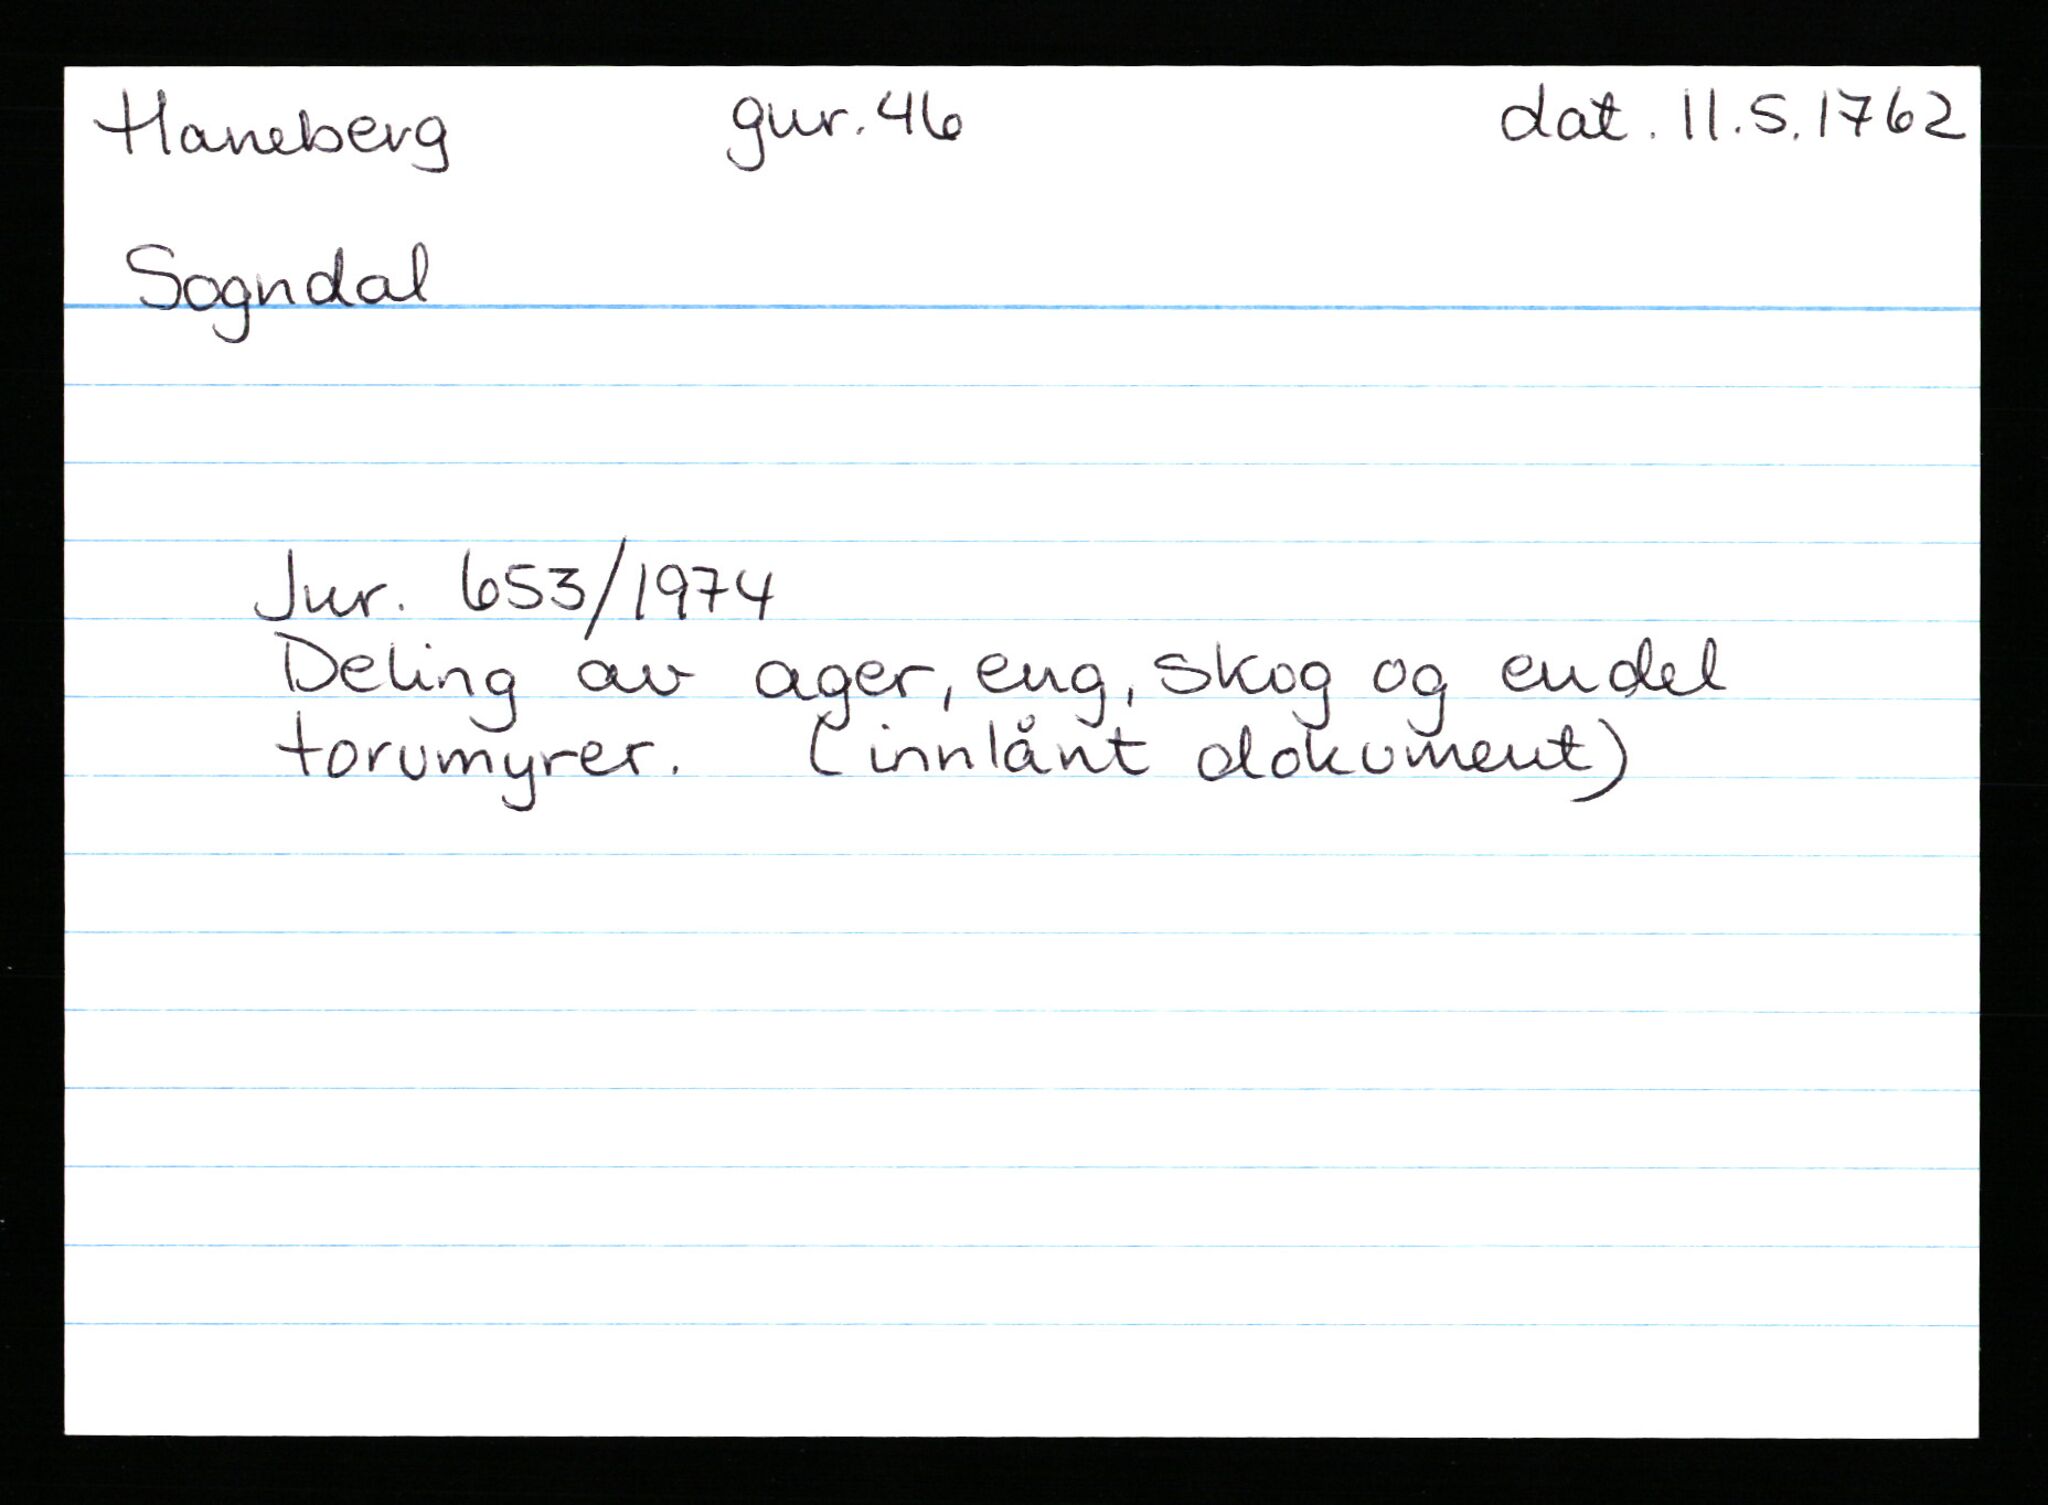 Haneberg gnr. 46 dat. 11.5.1762
Sogndal
Jnr. 653/1974
Deling av ager, eng, skog og endel
torvmyrer. (innlånt dokument)